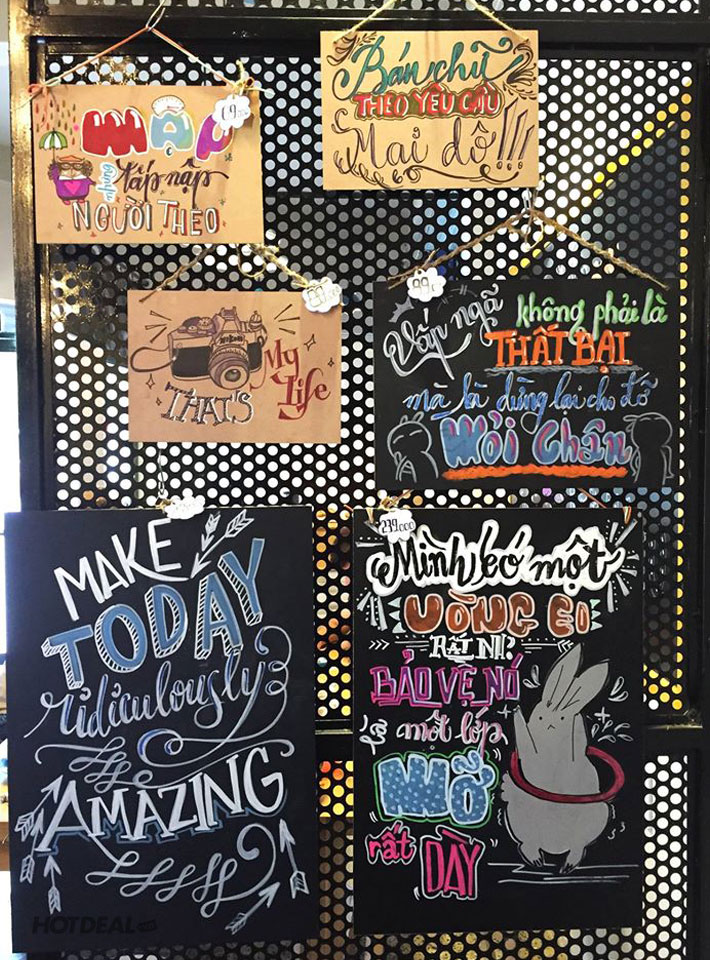 Bán chữ
THEO YÊU CẦU
Mai dô!!!
MẬP
nhưng tấp nập
NGƯỜI THEO
THAT'S
My Life
99.000
Vấp ngã không phải là
THẤT BẠI
mà là dừng lại cho đỡ
Mỏi Chân
MAKE
TODAY
ridiculously
AMAZING
239.000
Mình có một
VÒNG EO
RẤT NHỎ
BẢO VỆ NÓ
là một lớp
MỠ
rất DÀY
HOTDEAL